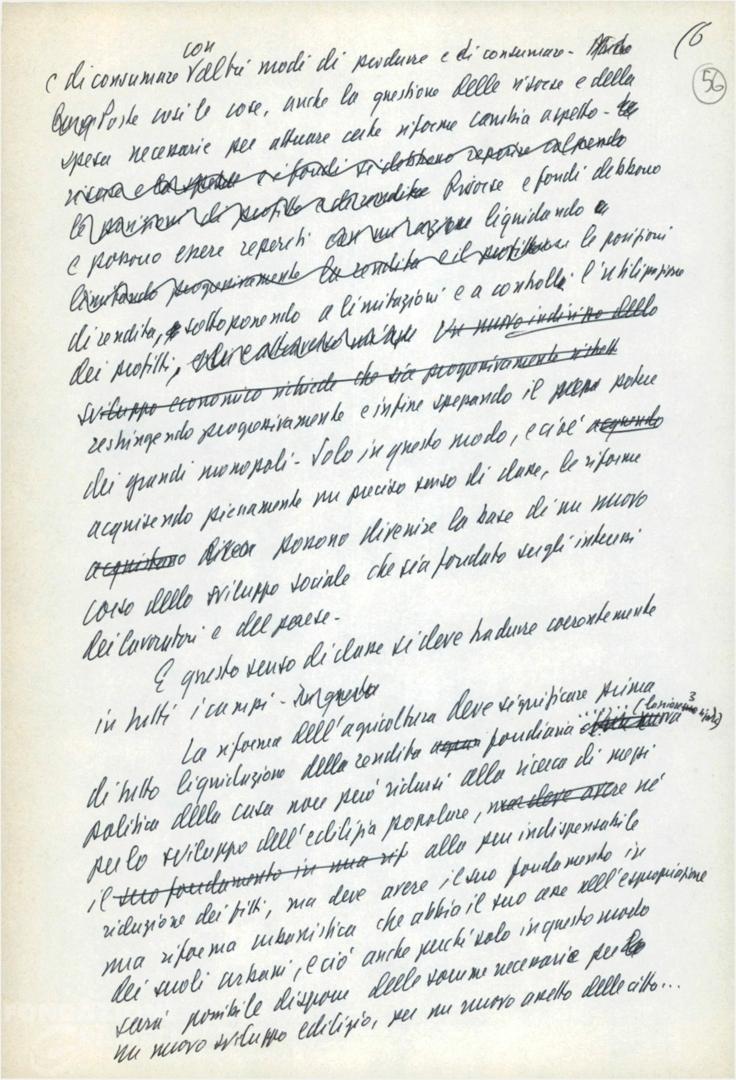 16
56
con
e di consumare √ altri modi di produrre e di consumare -
Poste così le cose, anche la questione delle risorse e della
spesa necessarie per attuare certe riforme cambia aspetto -
risorse e la spesa e i fondi si debbono reperire colpendo
le posizioni di profitto e di rendita Risorse e fondi debbono
e possono essere reperiti liquidando
limitando progressivamente la rendita e il profitto le posizioni
di rendita, sottoponendo a limitazioni e a controlli l'utilizzazione
dei profitti, Un nuovo indirizzo dello
sviluppo economico richiede che sia progressivamente
restringendo progressivamente e infine spezzando il potere
dei grandi monopoli - Solo in questo modo, e cioè acquendo
acquisendo pienamente un preciso senso di classe, le riforme
acquistano possono divenire la base di un nuovo
corso dello sviluppo sociale che sia fondato sugli interessi
dei lavoratori e del paese -
E questo senso di classe si deve tradurre coerentemente
in tutti i campi - In questa
La riforma dell'agricoltura deve significare prima
di tutto liquidazione della rendita fondiaria
politica della casa non può ridursi alla ricerca di mezzi
per lo sviluppo dell'edilizia popolare, non deve avere né
il suo fondamento in una rif alla pur indispensabile
riduzione dei fitti, ma deve avere il suo fondamento in
una riforma urbanistica che abbia il suo asse nell'espropriazione
dei suoli urbani, e ciò anche perché solo in questo modo
sarà possibile disporre delle somme necessarie per
un nuovo sviluppo edilizio, per un nuovo assetto delle città...